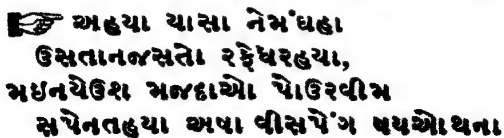 ☞ અહયા યાસા નેમંઘહા
ઉસતાનજસતો રફેધરહયા,
મઇનયેઉશ મજદાઓ પોઉરવીમ
સપેનતહયા અષા વીસપેંગ ષયઓથના।